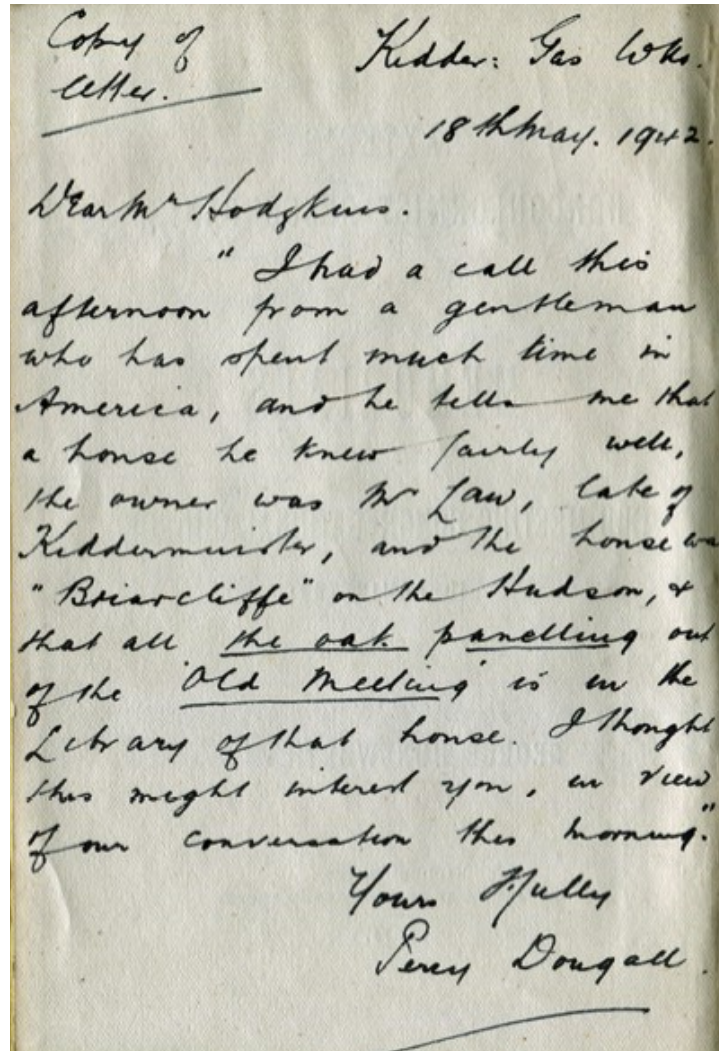 Copy of
letter.
Kidder: Gas Wks.
18th May. 1942.
Dear Mr Hodgkins.
"I had a call this
afternoon from a gentleman
who has spent much time in
America, and he tells me that
a house he knew fairly well,
the owner was Mr Law, late of
Kiddermuister, and the house was
"Briarcliffe" on the Hudson, &
that all the oak panelling out
of the 'Old Meeting' is in the
Library of that house. I thought
this might interest you, in view
of our conversation this morning."
Yours Ffully
Percy Dougall.